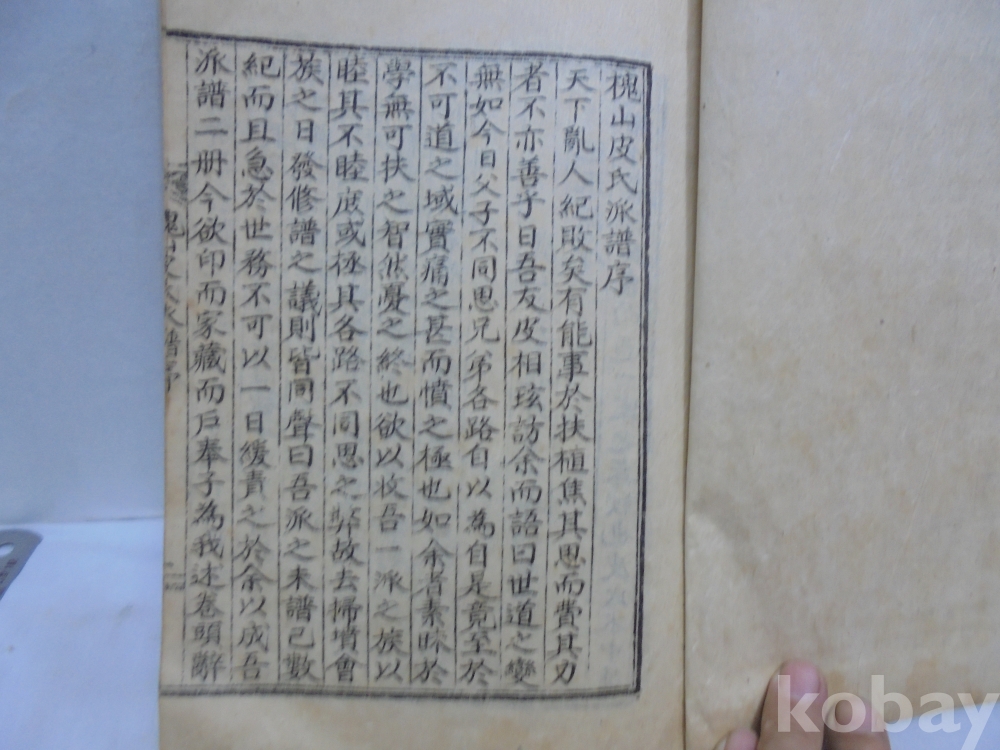 槐山皮氏派譜序
天下亂人紀敗矣有能事於扶植焦其思而費其力
者不亦善乎日吾友皮相玹訪余而語曰世道之變
無如今日父子不同思兄弟各路自以為自是竟至於
不可道之域實痛之甚而憤之極也如余者素昧於
學無可扶之智然憂之終也欲以收吾一派之族以
睦其不睦庶或拯其各路不同思之弊故去掃墳會
族之日發修譜之議則皆同聲曰吾派之未譜已數
紀而且急於世務不可以一日緩責之於余以成吾
派譜二册今欲印而家藏而戶奉子為我述卷頭辭
槐山皮氏派譜序
kobay